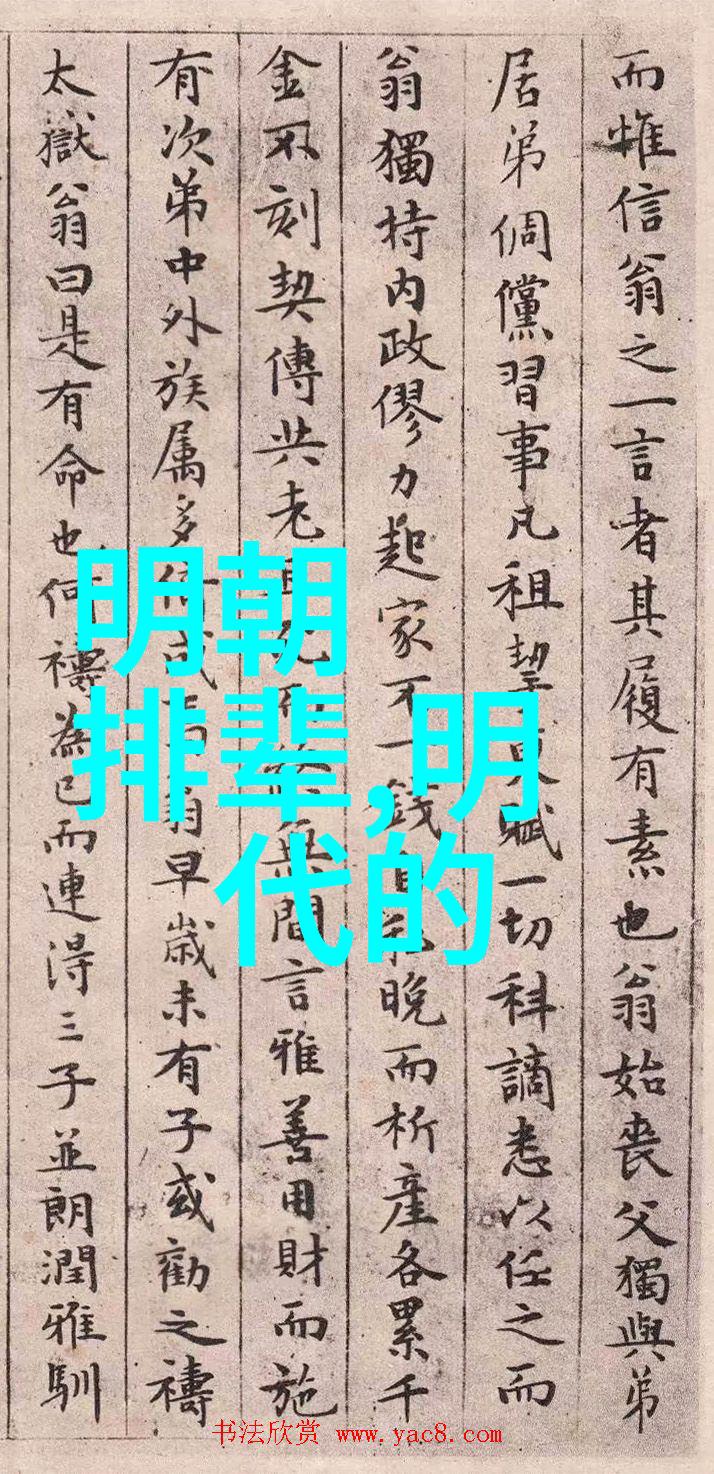 而惟信翁之一言者其履有素也翁始喪父獨與弟
居弟倜儻習事凡租挈更賦一切科謫悉以任之而
翁獨持内政僇力起家不一錢自私晚而析產各累千
金不刻契傳共老且死而終無間言雅善用財而施
有次弟中外族属多倚成焉翁早歲未有子或勸之禱
太嶽翁曰是有命也何禱為已而連得三子並朗潤雅馴
明朝
排辈,明
代的
书法欣赏 www.yac8.com